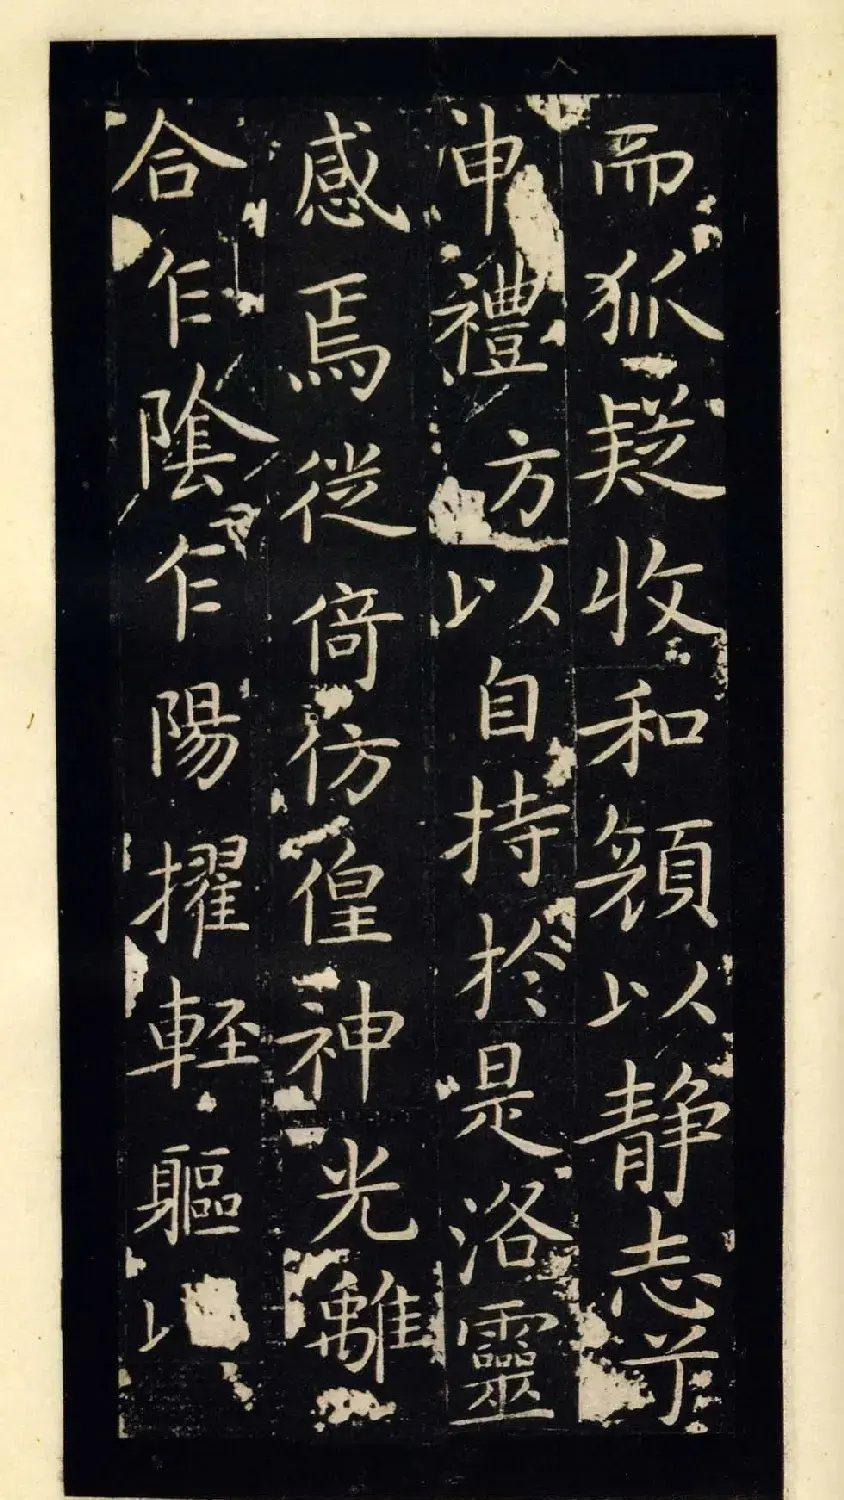 而狐疑收和顏以静志兮
申禮防以自持於是洛靈
感焉徙倚彷偟神光離
合乍陰乍陽擢輕軀以